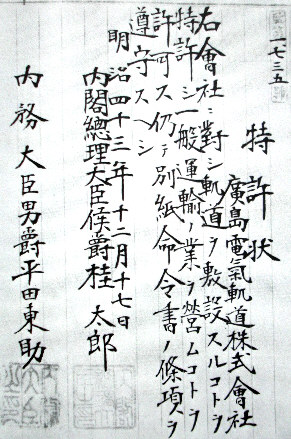 一七三五
特許状
廣島電氣軌道株式會社
右會社ニ對シ軌道ヲ敷設スルコトヲ
特許シ一般運輸ノ業ヲ營ムコトヲ
許可ス仍テ別紙命令書ノ條項ヲ
遵守スヘシ
明治四十三年十二月十七日
內閣總理大臣侯爵桂太郎
內務大臣男爵平田東助